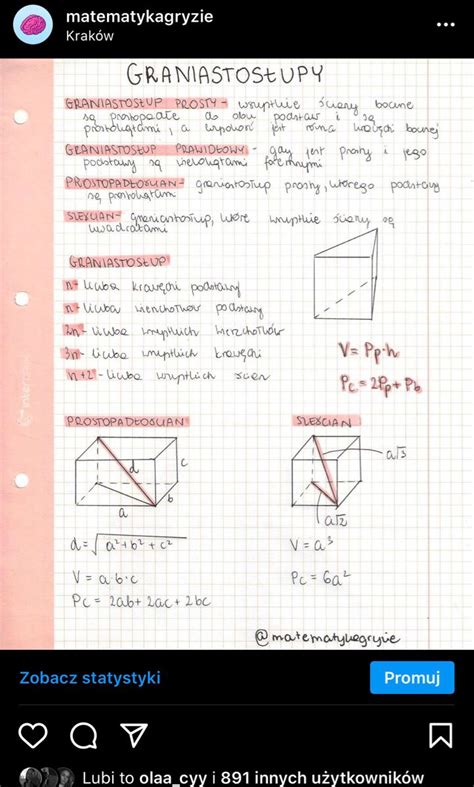 matematykagryzie
Kraków
GRANIASTOSŁUPY
GRANIASTOSŁUP PROSTY - wszystkie ściany boczne
są prostopadłe do obu podstaw i są
prostokątami, a wysokość jest równa krawędzi bocznej
GRANIASTOSŁUP PRAWIDŁOWY - gdy jest prosty i jego
podstawy są wielokątami foremnymi
PROSTOPADŁOŚCIAN - graniastosłup prosty, którego podstawy
są prostokątami
SZEŚCIAN - graniastosłup, które wszystkie ściany są
kwadratami
GRANIASTOSŁUP
n - liczba krawędzi podstawy
n - liczba wierzchołków podstawy
2n - liczba wszystkich wierzchołków
3n - liczba wszystkich krawędzi
n+2 - liczba wszystkich ścian
V = Pp·h
Pc = 2Pp + Pb
PROSTOPADŁOŚCIAN
d
c
b
a
d = √a²+b²+c²
V = a·b·c
Pc = 2ab + 2ac + 2bc
SZEŚCIAN
a√3
a√2
V = a³
Pc = 6a²
@matematykagryzie
Zobacz statystyki
Promuj
Lubi to olaa_cyy i 891 innych użytkowników